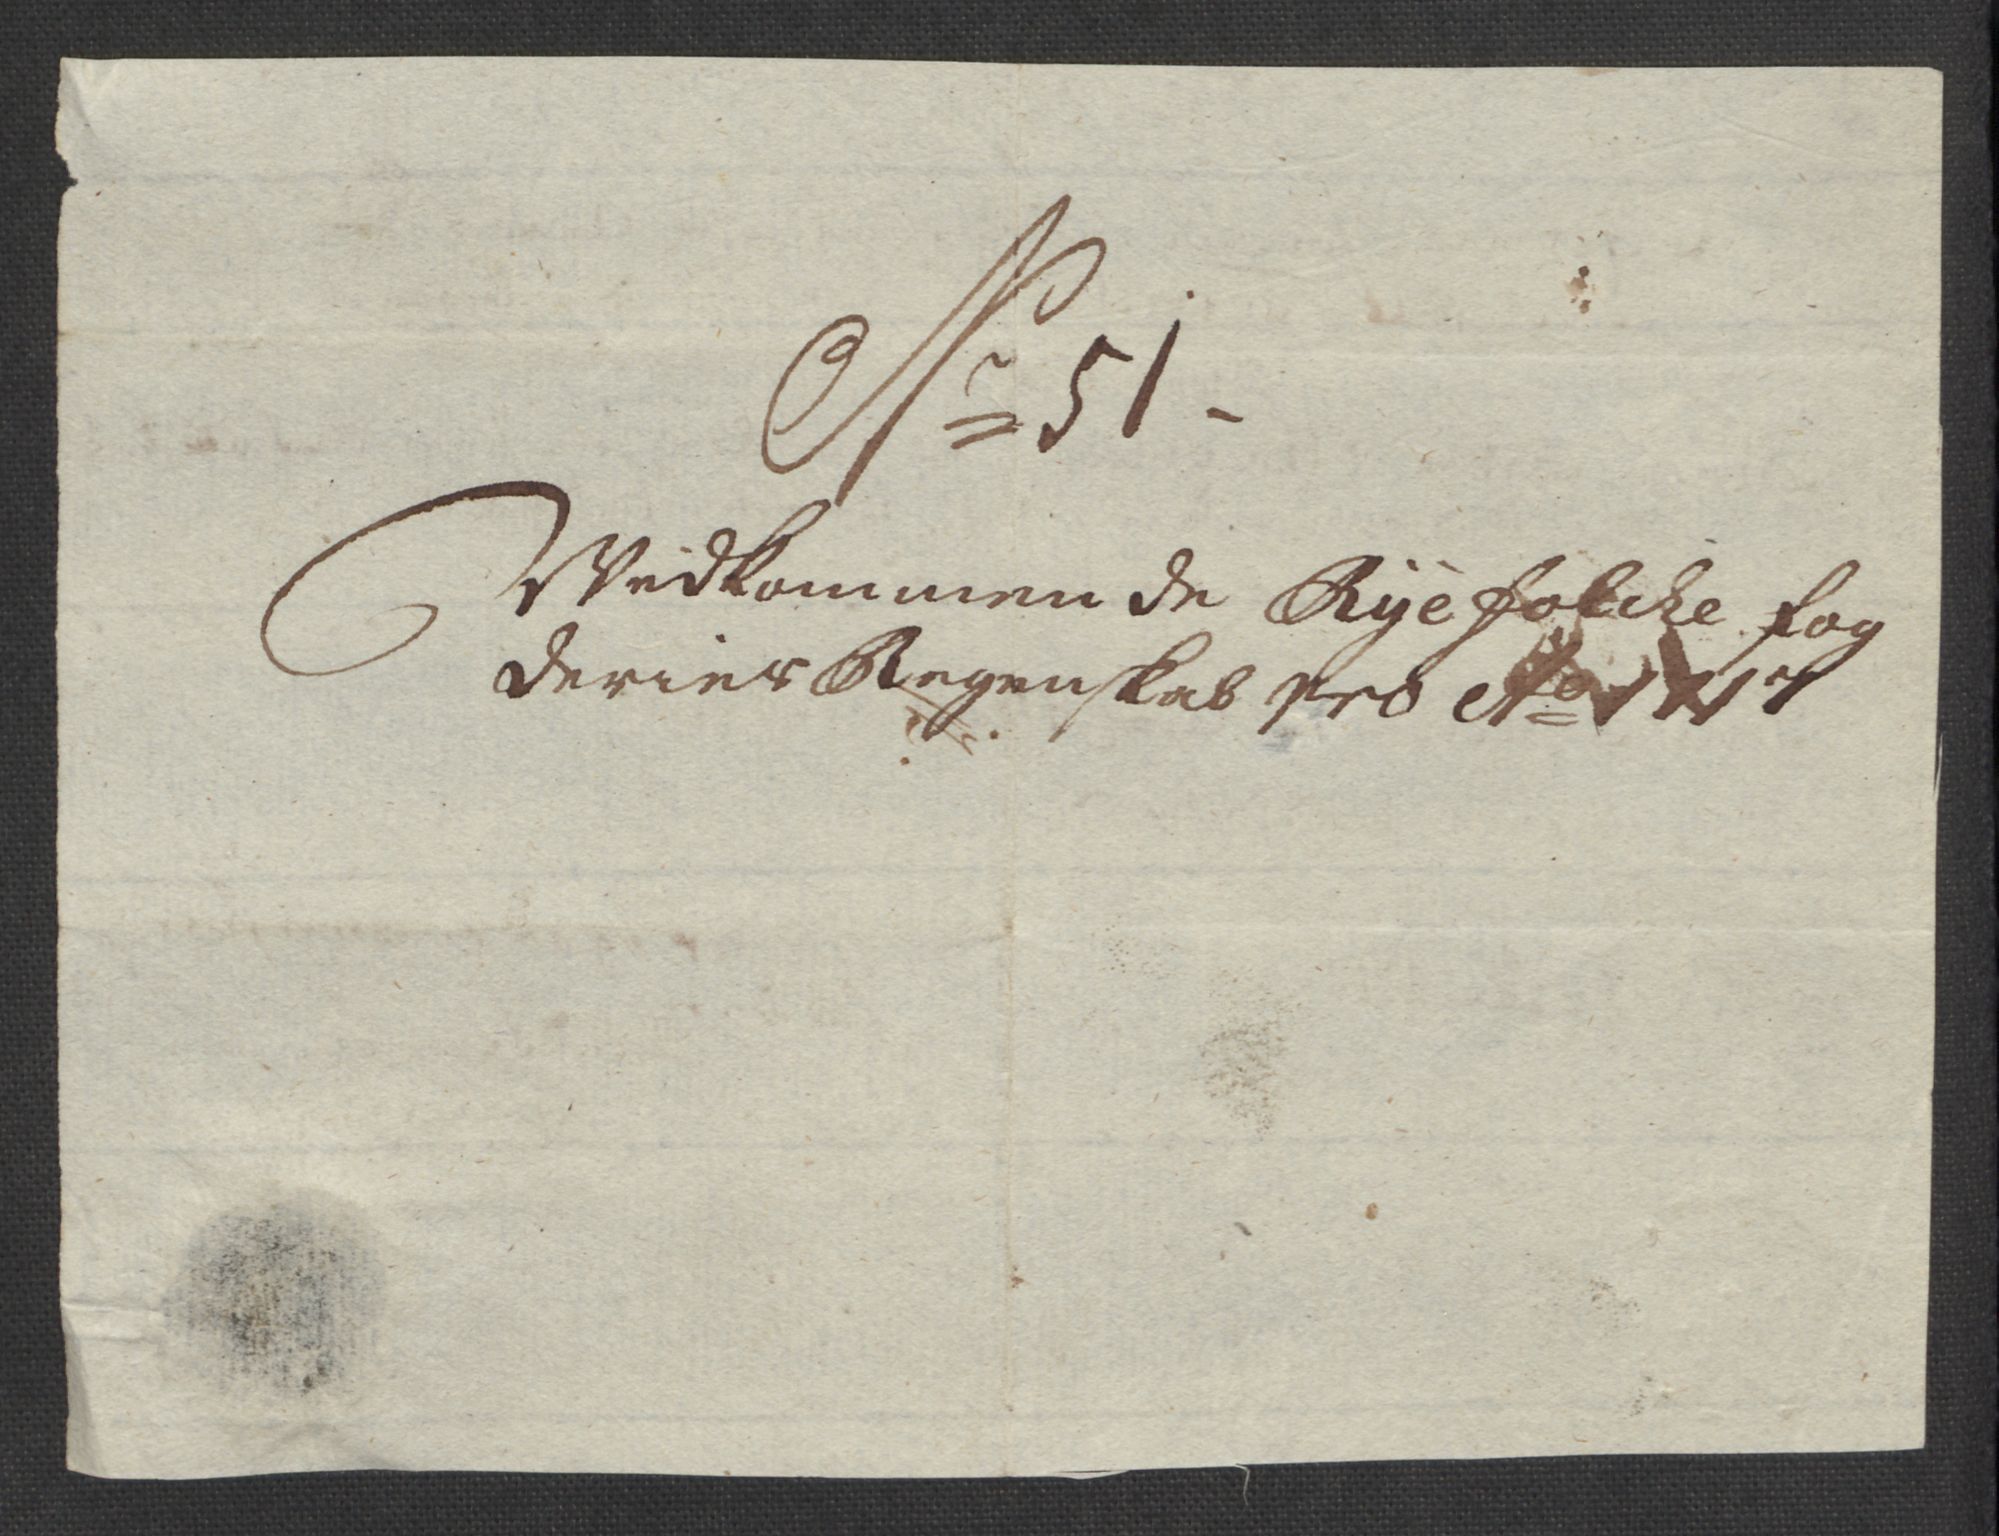 No 51-
Vedkommende Ryefylcke fog
deries Regenskab pro Ao 1717